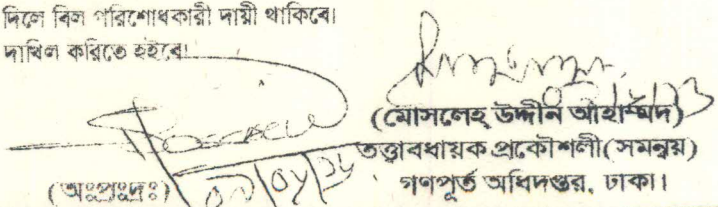 দিলে বিল পরিশোধকারী দায়ী থাকিবে।
দাখিল করিতে হইবে।
(মোসলেহ্ উদ্দীন আহাম্মদ)
তত্ত্বাবধায়ক প্রকৌশলী(সমন্বয়)
গণপূর্ত অধিদপ্তর, ঢাকা।
(অঃপ্রঃদ্রঃ)